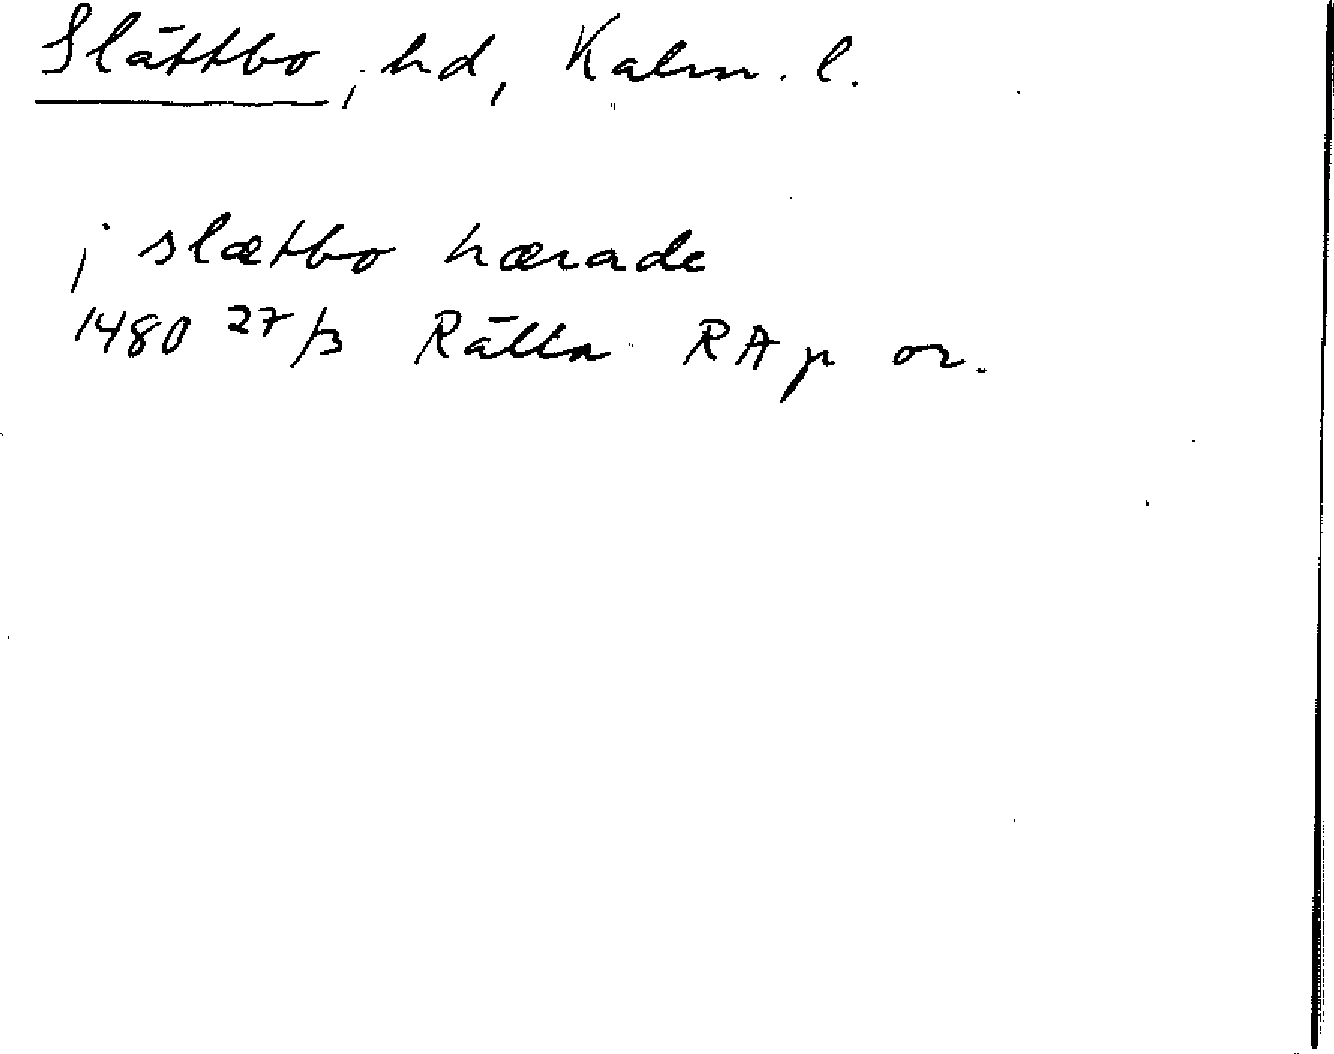 Slättbo, hd, Kalm. l.
j slætbo hærade
1480 27/3 Rälla RA p or.